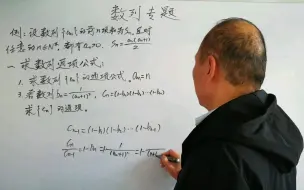 数列专题
例：设数列{an}的前n项和为Sn，且对
任意的n∈N*，都有an>0，Sn=an(an+1)/2
一 求数列通项公式：
1. 求数列{an}的通项公式。an=n
2. 若数列bn=1/(an+1)²，Cn=(1-b1)(1-b2)…(1-bn)
求{Cn}的通项。
Cn-1=(1-b1)(1-b2)…(1-bn-1)
Cn/Cn-1=1-bn=1-1/(an+1)²=1-